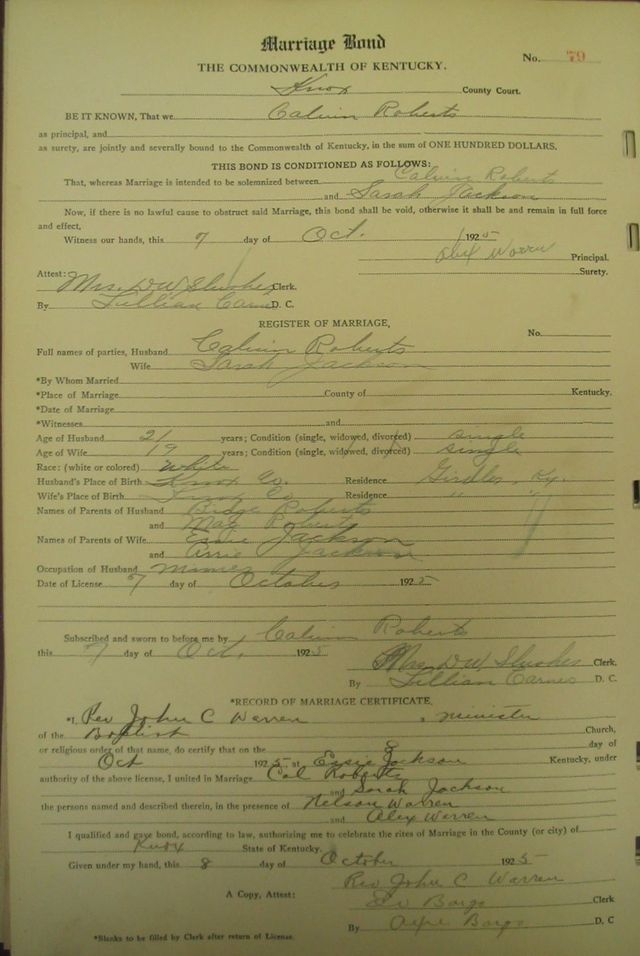 Marriage Bond
No. 79
THE COMMONWEALTH OF KENTUCKY.
Knox County Court.
BE IT KNOWN, That we Calvin Roberts
as principal, and
as surety, are jointly and severally bound to the Commonwealth of Kentucky, in the sum of ONE HUNDRED DOLLARS.
THIS BOND IS CONDITIONED AS FOLLOWS:
That, whereas Marriage is intended to be solemnized between Calvin Roberts
and Sarah Jackson
Now, if there is no lawful cause to obstruct said Marriage, this bond shall be void, otherwise it shall be and remain in full force
and effect,
Witness our hands, this 7 day of Oct. 1925
Alex Warren Principal.
Surety.
Attest:
Mrs. D W Slusher Clerk.
By Lillian Carnes D. C.
REGISTER OF MARRIAGE,
No.
Full names of parties, Husband Calvin Roberts
Wife Sarah Jackson
*By Whom Married
*Place of Marriage County of Kentucky.
*Date of Marriage
*Witnesses and
Age of Husband 21 years; Condition (single, widowed, divorced) single
Age of Wife 19 years; Condition (single, widowed, divorced) single
Race: (white or colored) White
Husband's Place of Birth Knox Co. Residence Girdler, Ky.
Wife's Place of Birth Knox Co Residence " "
Names of Parents of Husband Roberts
and Roberts
Names of Parents of Wife Jackson
and Jackson
Occupation of Husband Miner
Date of License 7 day of October 1925
Subscribed and sworn to before me by Calvin Roberts
this 7 day of Oct. 1925
Mrs D W Slusher Clerk.
By Lillian Carnes D. C.
*RECORD OF MARRIAGE CERTIFICATE.
*I, Rev John C Warren, a minister
of the Baptist Church,
or religious order of that name, do certify that on the 8 day of
Oct 1925 at Essie Jackson Kentucky, under
authority of the above license, I united in Marriage Cal Roberts
and Sarah Jackson
the persons named and described therein, in the presence of Nelson Warren
and Alex Warren
I qualified and gave bond, according to law, authorizing me to celebrate the rites of Marriage in the County (or city) of
Knox State of Kentucky.
Given under my hand, this 8 day of October 1925
Rev John C Warren
A Copy, Attest: Clerk
By D. C
*Blanks to be filled by Clerk after return of License.